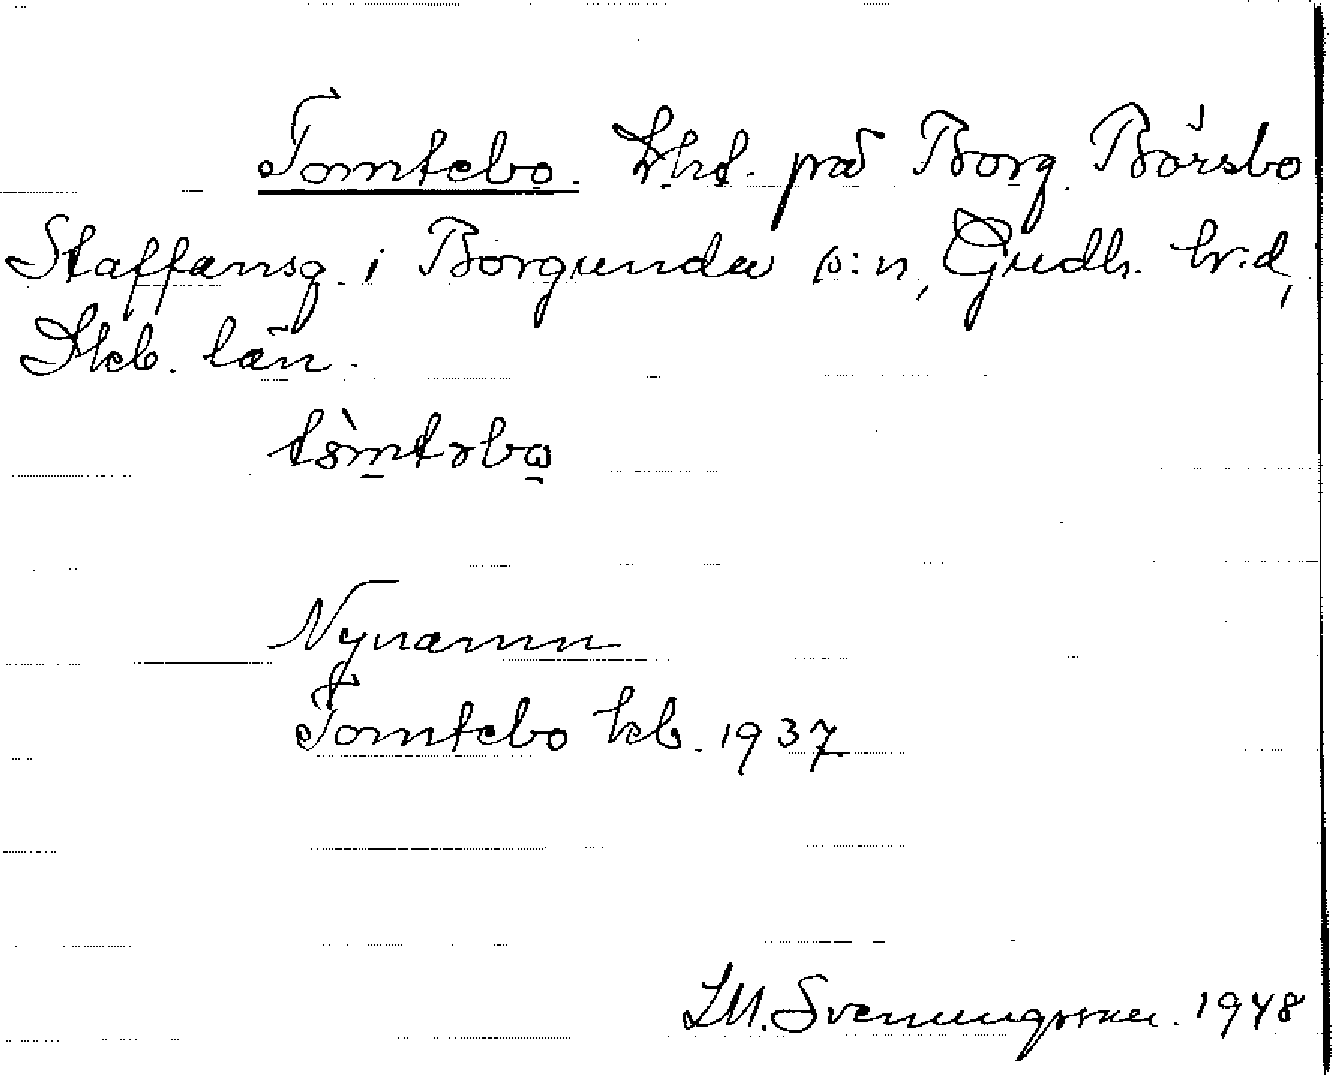 Tomtebo. Lht. på Borg. Börsbo
Staffansg. i Borgunda s:n, Gudh. hr.d,
Skb. län.
Nynamn
Tomtebo kb. 1937
Svenungsson. 1948